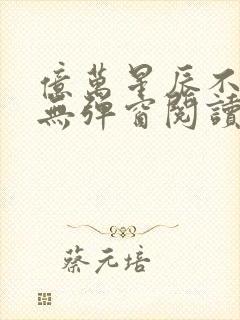 億萬星辰不
無彈窗閱讀
蔡元培